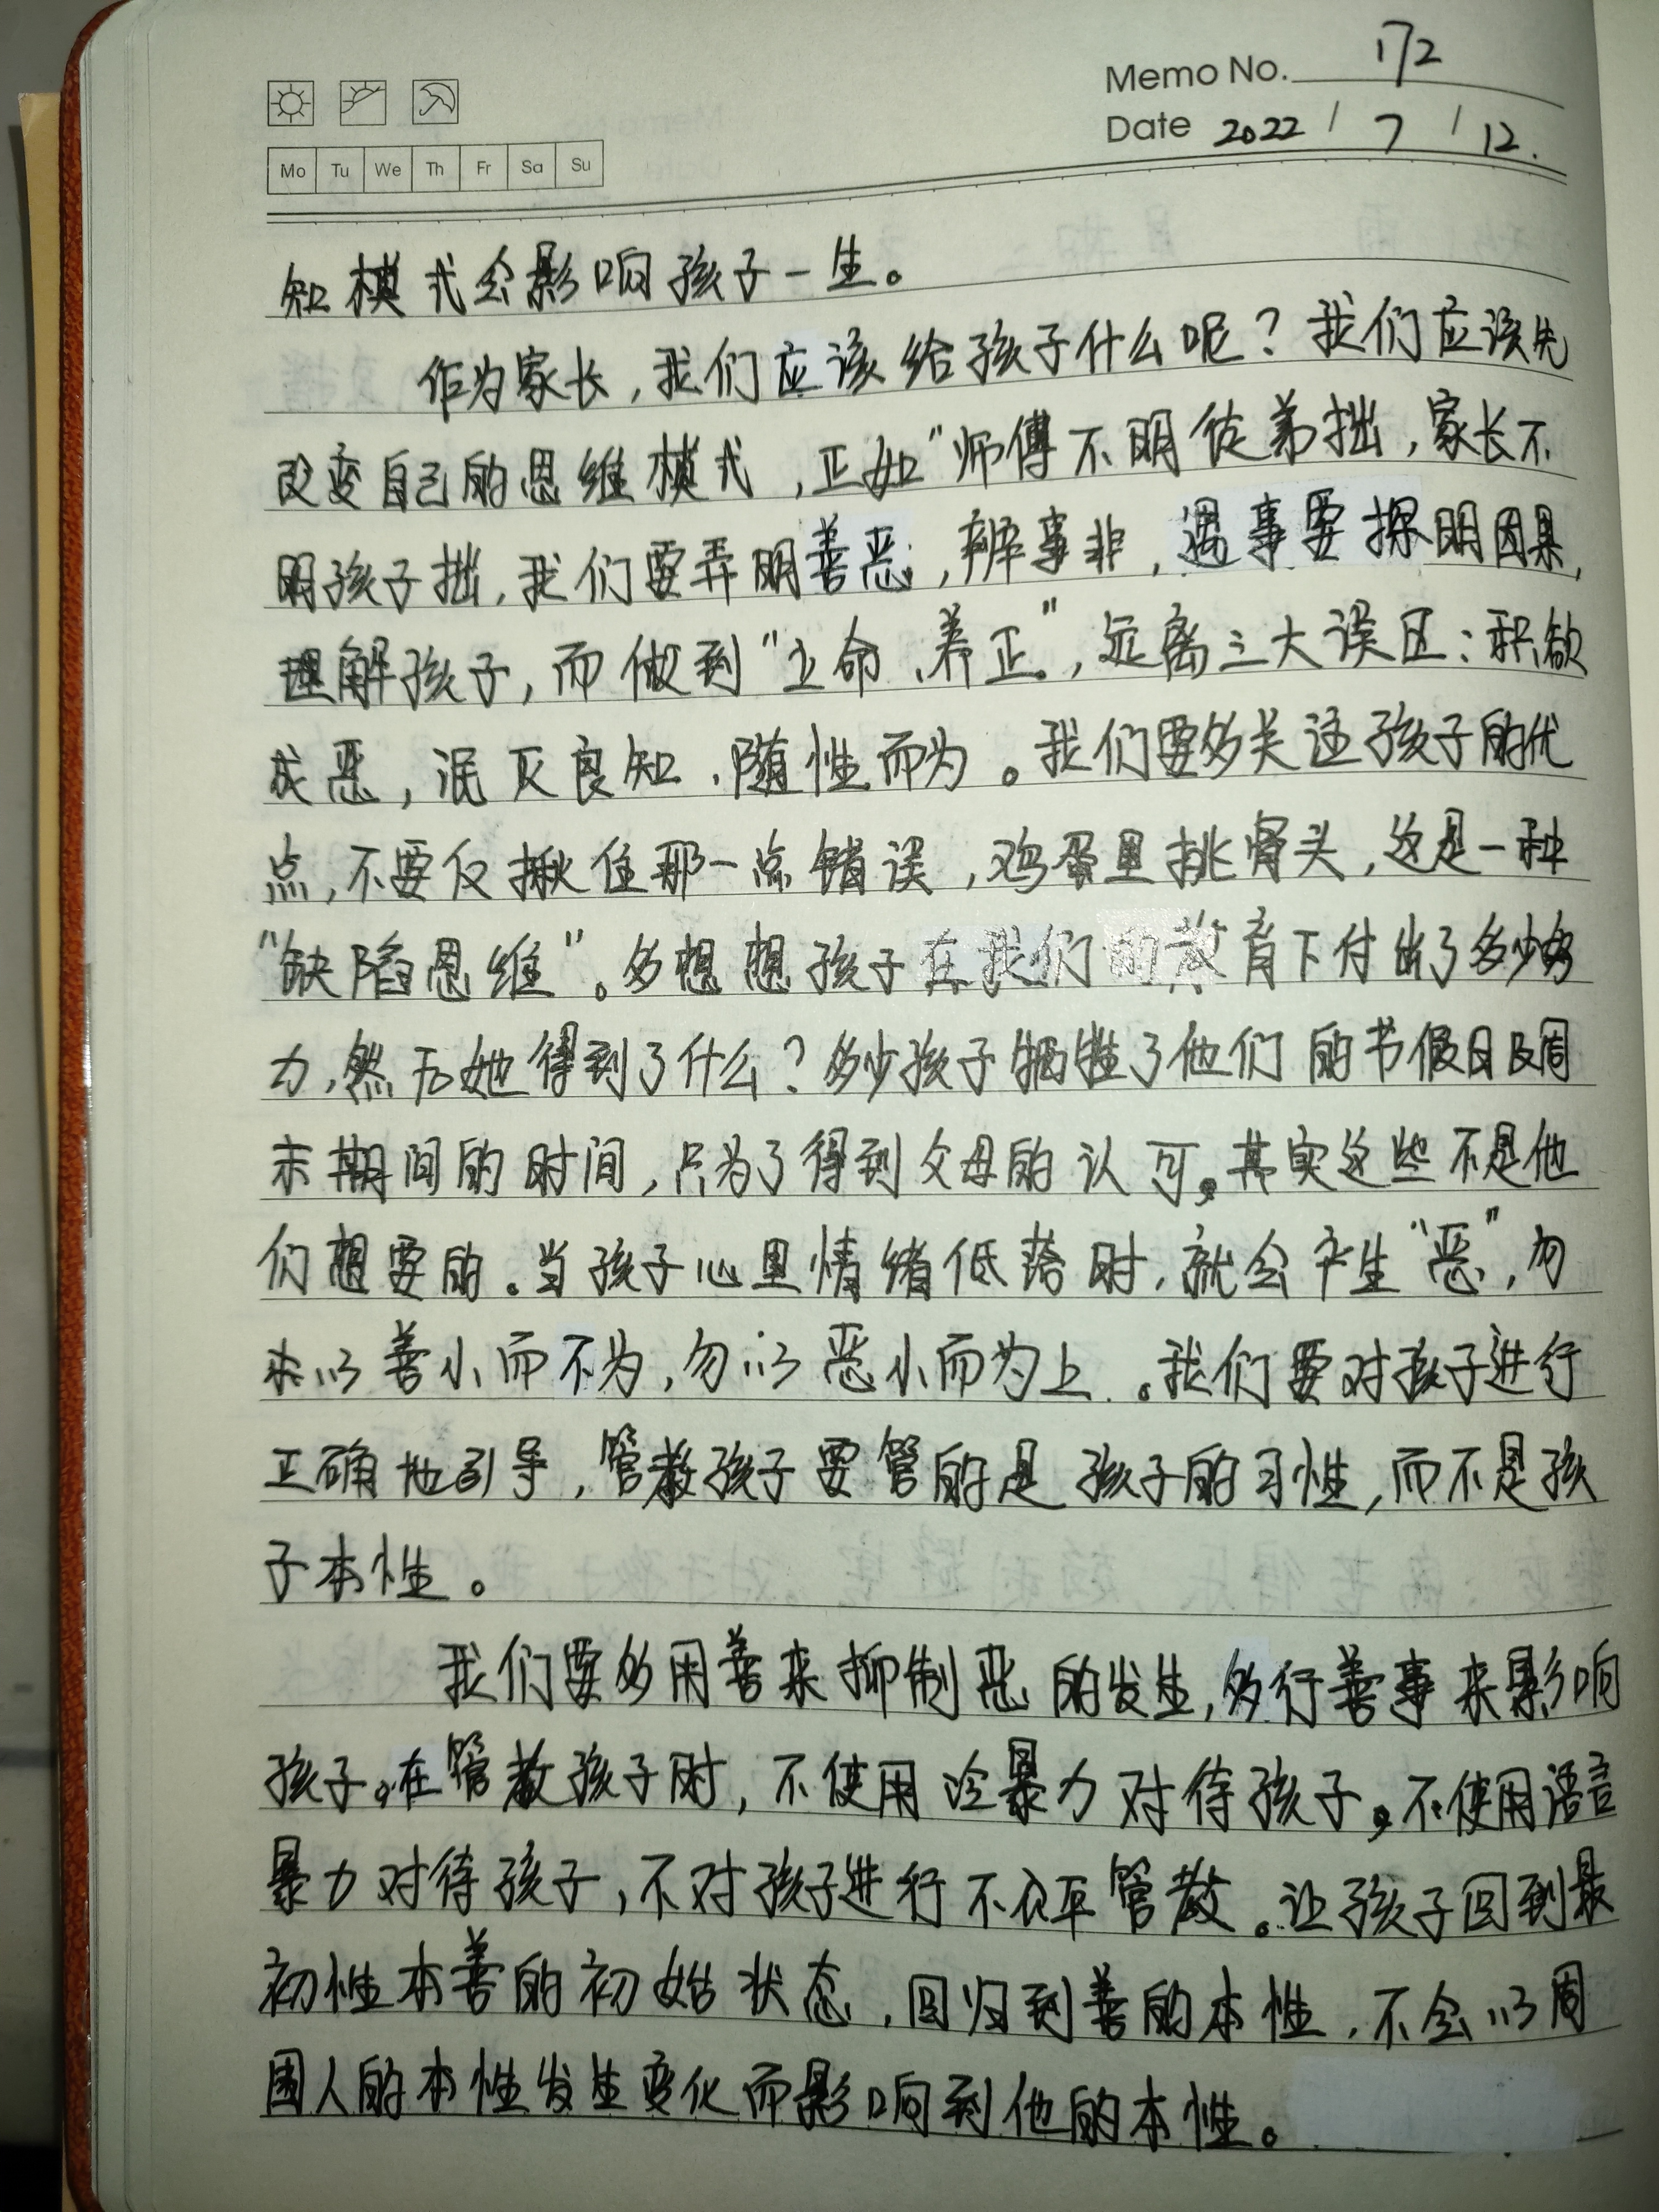 Memo No. 172
Date 2022 / 7 / 12.
Mo Tu We Th Fr Sa Su
知模式会影响孩子一生。
作为家长，我们应该给孩子什么呢？我们应该先
改变自己的思维模式，正如“师傅不明徒弟拙，家长不
明孩子拙，我们要弄明善恶，辨事非，遇事要探明因果，
理解孩子，而做到“立命、养正”，远离三大误区：积欲
成恶，泯灭良知，随性而为。我们要多关注孩子的优
点，不要仅揪住那一点错误，鸡蛋里挑骨头，这是一种
“缺陷思维”。多想想孩子在我们的教育下付出了多少努
力，然后她得到了什么？多少孩子牺牲了他们的节假日及周
末期间的时间，只为了得到父母的认可。其实这些不是他
们想要的。当孩子心里情绪低落时，就会产生“恶”，勿
以善小而不为，勿以恶小而为上。我们要对孩子进行
正确地引导，管教孩子要管的是孩子的习性，而不是孩
子本性。
我们要多用善来抑制恶的发生，多行善事来影响
孩子。在管教孩子时，不使用冷暴力对待孩子，不使用语言
暴力对待孩子，不对孩子进行不公平管教。让孩子回到最
初性本善的初始状态，回归到善的本性，不会以周
围人的本性发生变化而影响到他的本性。